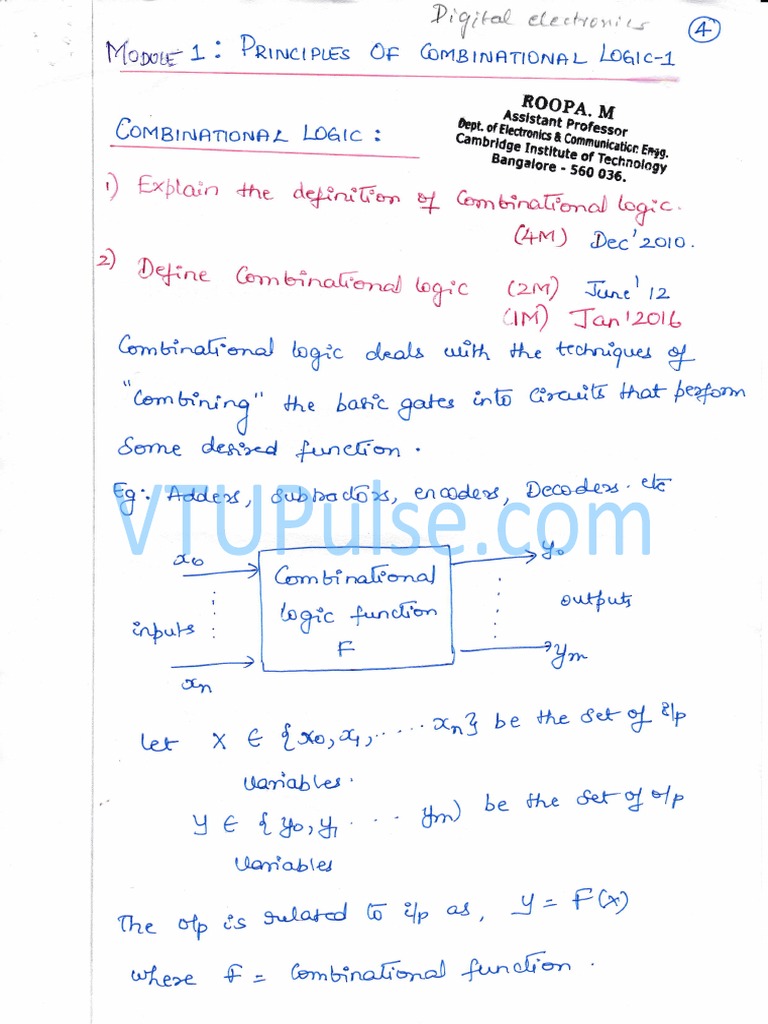 Digital electronics
4
MODULE 1: PRINCIPLES OF COMBINATIONAL LOGIC-1
ROOPA. M
Assistant Professor
Dept. of Electronics & Communication Engg.
Cambridge Institute of Technology
Bangalore - 560 036.
COMBINATIONAL LOGIC:
1) Explain the definition of Combinational logic.
(4M) Dec' 2010.
2) Define Combinational logic (2M) June' 12
(1M) Jan' 2016
Combinational logic deals with the techniques of
"Combining" the basic gates into circuits that perform
Some desired function.
Eg: Adders, subtractors, encoders, Decoders. etc
VTUPulse.com
x0
y0
Combinational
logic function
F
inputs
outputs
xn
ym
let X ∈ {x0, x1, ..... xn} be the set of i/p
variables.
Y ∈ {y0, y1 .... ym) be the set of o/p
variables
The o/p is related to i/p as, y = F(x)
where F = Combinational function.